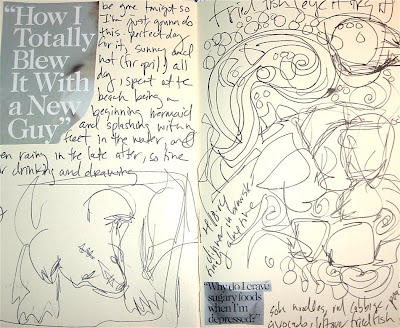 "How I
Totally
Blew
It With
a New
Guy"
be gone tonight so
I'm just gonna do
this. perfect day
for it, sunny and
hot (for april) all
day, i spent at the
beach being a
beginning mermaid
and splashing with my
feet in the water, and
then rainy in the late after, so fine
for drinking and drawing
fried fish eye
"Why do I crave
sugary foods
when I'm
depressed?"
soba noodles, red cabbage,
avocado, fried fish